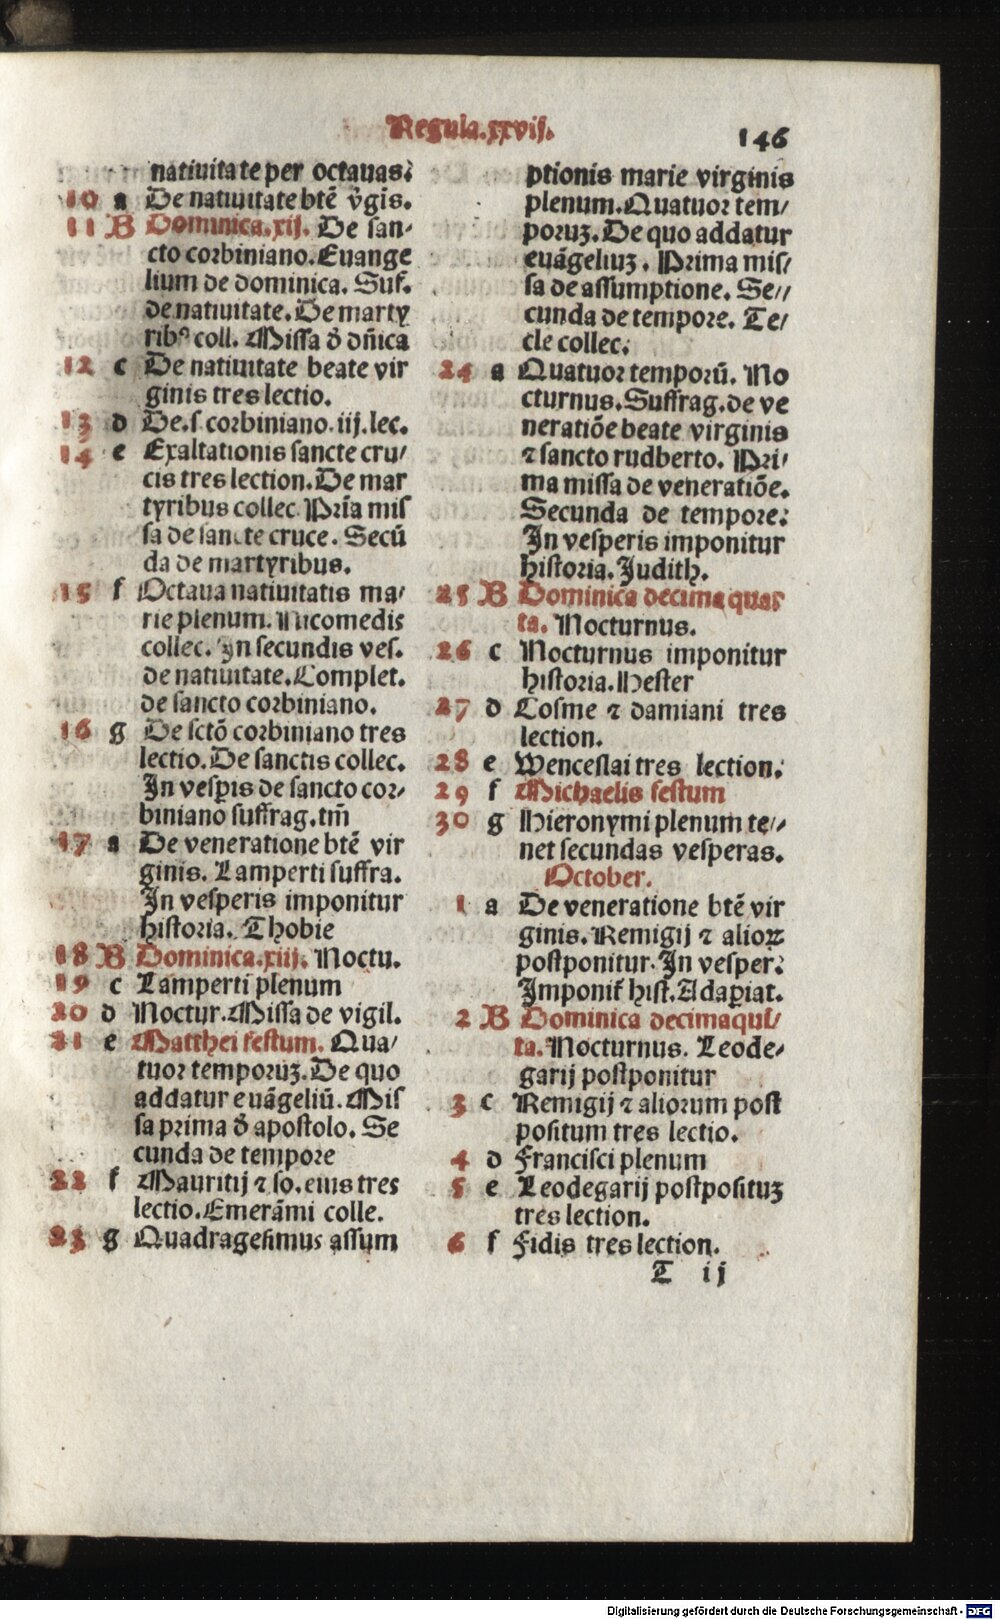 Regula.xxvij.
146
natiuitate per octauas:
10 a De natiuitate btē v̄gis.
11 B Dominica.xij. De san-
cto corbiniano. Euange
lium de dominica. Suf.
de natiuitate. De marty
ribꝰ coll. Missa d̄ dn̄ica
12 c De natiuitate beate vir
ginis tres lectio.
13 d De.s corbiniano.iij.lec.
14 e Exaltationis sancte cru/
cis tres lection. De mar
tyribus collec. Prīa mis
sa de sancte cruce. Secū
da de martyribus.
15 f Octaua natiuitatis ma/
rie plenum. Nicomedis
collec. In secundis ves.
de natiuitate. Complet.
de sancto corbiniano.
16 g De sctō corbiniano tres
lectio. De sanctis collec.
In vesꝑis de sancto cor-
biniano suffrag.tm̄
17 a De veneratione btē vir
ginis. Lamperti suffra.
In vesperis imponitur
historia. Thobie
18 B Dominica.xiij. Noctu.
19 c Lamperti plenum
20 d Noctur. Missa de vigil.
21 e Matthei festum. Qua/
tuor temporuʒ. De quo
addatur euāgeliū. Mis
sa prima d̄ apostolo. Se
cunda de tempore
22 f Mauritij ⁊ so. eius tres
lectio. Emerāmi colle.
23 g Quadragesimus assum
ptionis marie virginis
plenum. Quatuor tem/
poruʒ. De quo addatur
euāgeliuʒ. Prima mis/
sa de assumptione. Se//
cunda de tempore. Te/
cle collec:
24 a Quatuor temporū. No
cturnus. Suffrag. de ve
neratiōe beate virginis
⁊ sancto rudberto. Pri/
ma missa de veneratiōe.
Secunda de tempore:
In vesperis imponitur
historia. Judith.
25 B Dominica decima quar
ta. Nocturnus.
26 c Nocturnus imponitur
historia. Hester
27 d Cosme ⁊ damiani tres
lection.
28 e Wenceslai tres lection:
29 f Michaelis festum
30 g Hieronymi plenum te//
net secundas vesperas.
October.
1 a De veneratione btē vir
ginis. Remigij ⁊ alioꝝ
postponitur. In vesper:
Imponit̄ hist. Adaꝑiat.
2 B Dominica decimaqui/
ta. Nocturnus. Leode/
garij postponitur
3 c Remigij ⁊ aliorum post
positum tres lectio.
4 d Francisci plenum
5 e Leodegarij postpositуʒ
tres lection.
6 f Fidis tres lection.
T ij
Digitalisierung gefördert durch die Deutsche Forschungsgemeinschaft - DFG